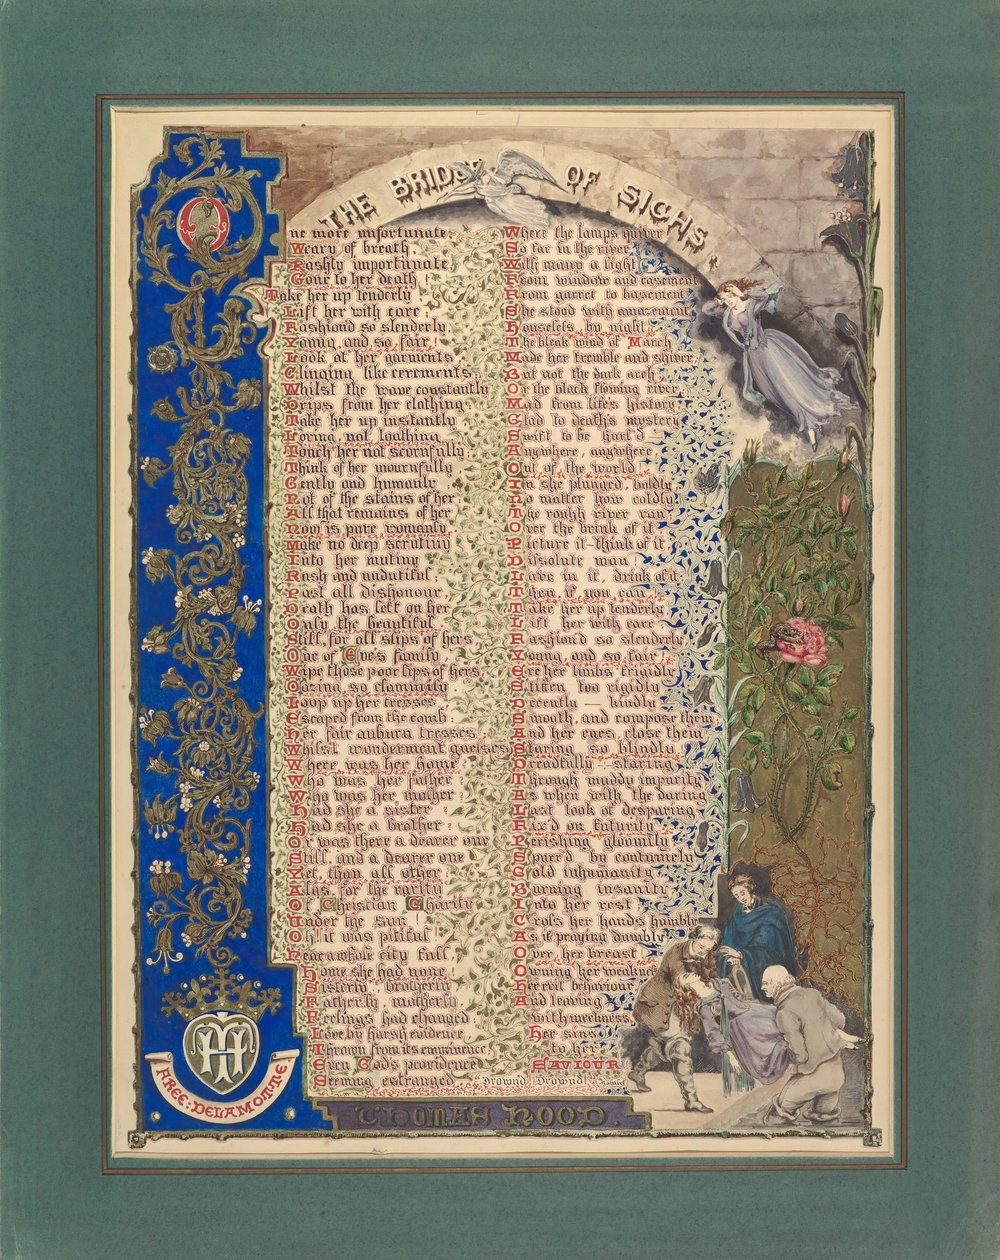 THE BRIDGE OF SIGHS
One more unfortunate;
Weary of breath
Rashly importunate,
Gone to her death!
Take her up tenderly
Lift her with care;
Fashiond so slenderly,
Young, and so fair!
Look at her garments,
Clinging like cerements,
Whilst the wave constantly
Drips from her clothing;
Take her up instantly
Loving, not loathing
Touch her not scornfully:
Think of her mournfully
Gently and humanly
Not of the stains of her:
All that remains of her
Now is pure womanly
Make no deep scrutiny
Into her mutiny
Rash and undutiful,
Past all dishonour,
Death has left on her
Only the beautiful.
Still, for all slips of hers
One of Eve's family,
Wipe those poor lips of hers
Oozing, so clammily
Loop up her tresses
Escaped from the comb:
Her fair auburn tresses;
Whilst wonderment guesses
Where was her home
Who was her father
Who was her mother:
Had she a sister
Had she a brother:
Or was there a dearer one
Still, and a dearer one
Yet, than all other
Alas, for the rarity
Of Christian Charity
Under the sun!
Oh! it was pitiful
Near a whole city full
Home she had none!
Sisterly brotherly
Fatherly, motherly
Feelings had changed
Love by harsh evidence,
Thrown from its eminence,
Even God's providence
Seeming estranged
Where the lamps quiver
So far in the river
With many a light
From window and casement
From garret to basement
She stood with amazement
Houseless, by night
The bleak wind of March
Made her tremble and shiver
But not the dark arch
Or the black flowing river
Mad from life's history
Glad to death's mystery
Swift to be hurl'd—
Anywhere, anywhere
Out of the world!
In she plunged boldly
No matter how coldly
The rough river ran
Over the brink of it
Picture it—think of it
Dissolute man!
Lave in it, drink of it
Then, if you can
Take her up tenderly
Lift her with care
Fashion'd so slenderly
Young, and so fair
Ere her limbs frigidly
Stiffen too rigidly
Decently — kindly
Smooth, and compose them
And her eyes, close them
Staring so blindly
Dreadfully—staring,
Through muddy impurity
As when with the daring
Last look of despairing
Fix'd on futurity
Perishing gloomily
Spurr'd by contumely
Cold inhumanity
Burning insanity
Into her rest
Cross her hands humbly
As if praying dumbly
Over her breast!
Owning her weakness
Her evil behaviour
And leaving
with meekness,
Her sins
to her
SAVIOUR!!
Drownd! Drownd! Hamlet
FREE: DELAMOTTE:
THOMAS HOOD.